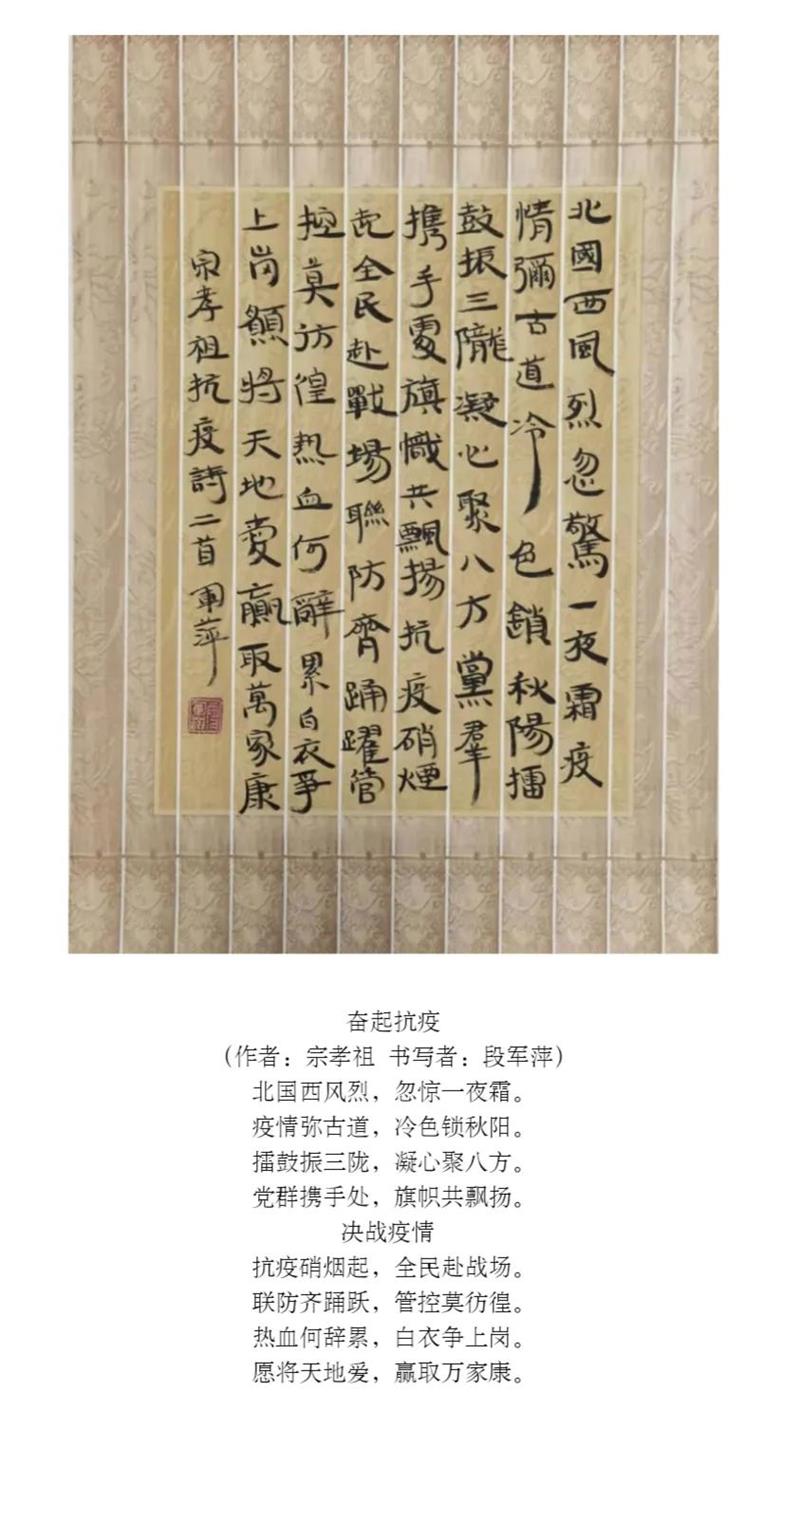 北國西風烈忽驚一夜霜疫
情彌古道冷色鎖秋陽擂
鼓振三隴凝心聚八方黨羣
携手處旗幟共飄揚抗疫硝煙
起全民赴戰場聯防齊踊躍管
控莫彷徨热血何辭累白衣爭
上崗願將天地愛贏取萬家康
宗孝祖抗疫詩二首軍萍
奋起抗疫
(作者：宗孝祖 书写者：段军萍)
北国西风烈，忽惊一夜霜。
疫情弥古道，冷色锁秋阳。
擂鼓振三陇，凝心聚八方。
党群携手处，旗帜共飘扬。
决战疫情
抗疫硝烟起，全民赴战场。
联防齐踊跃，管控莫彷徨。
热血何辞累，白衣争上岗。
愿将天地爱，赢取万家康。